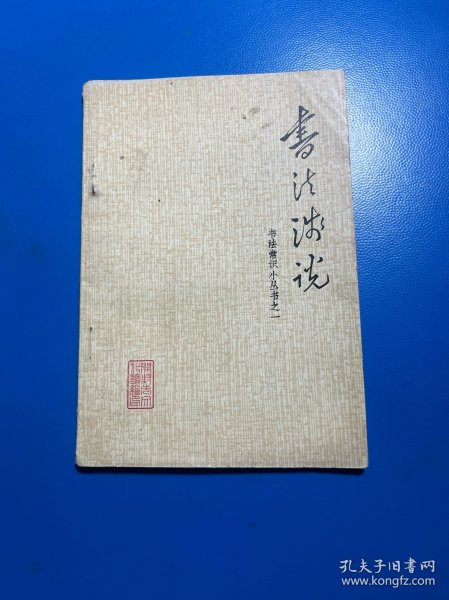 書法浅说
书法常识小丛书之一
孔夫子旧书网
www.kongfz.com